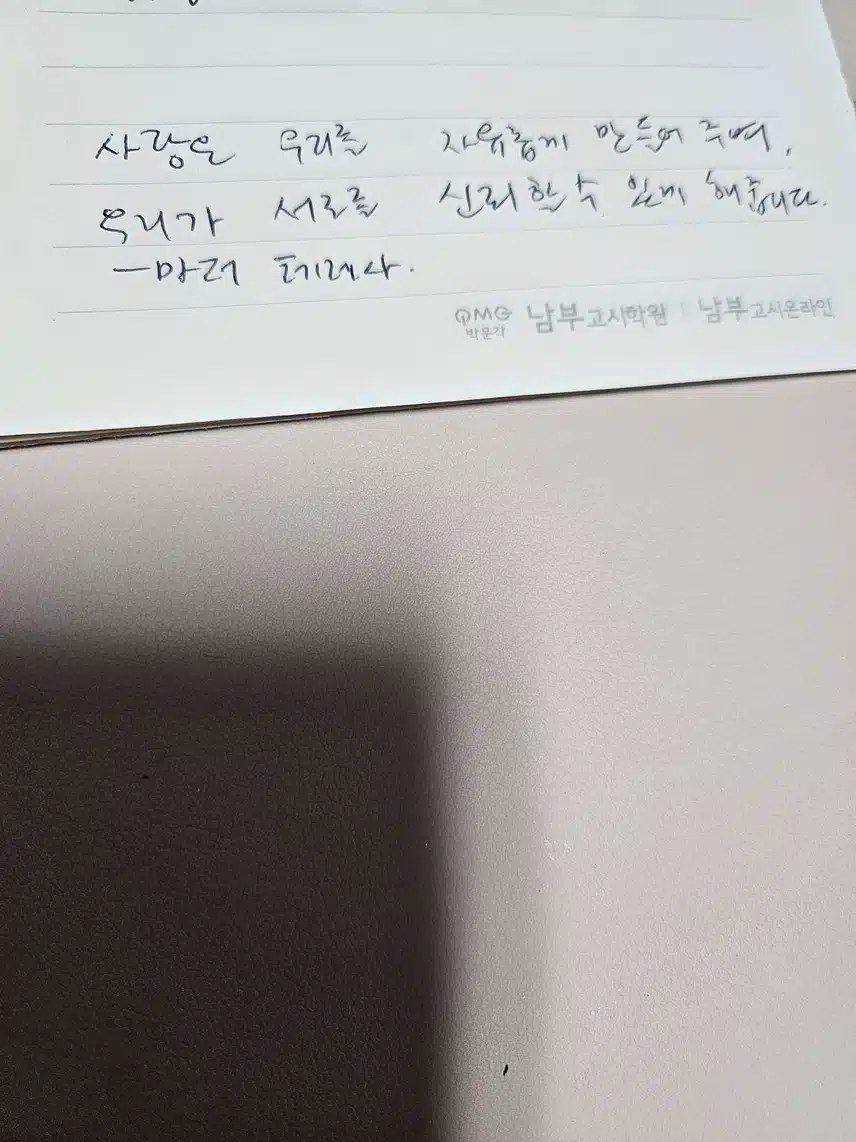 사랑은 우리를 자유롭게 만들어 주며,
우리가 서로를 신뢰할 수 있게 해줍니다.
-마더 테레사.
PMG 박문각 남부고시학원 | 남부고시온라인